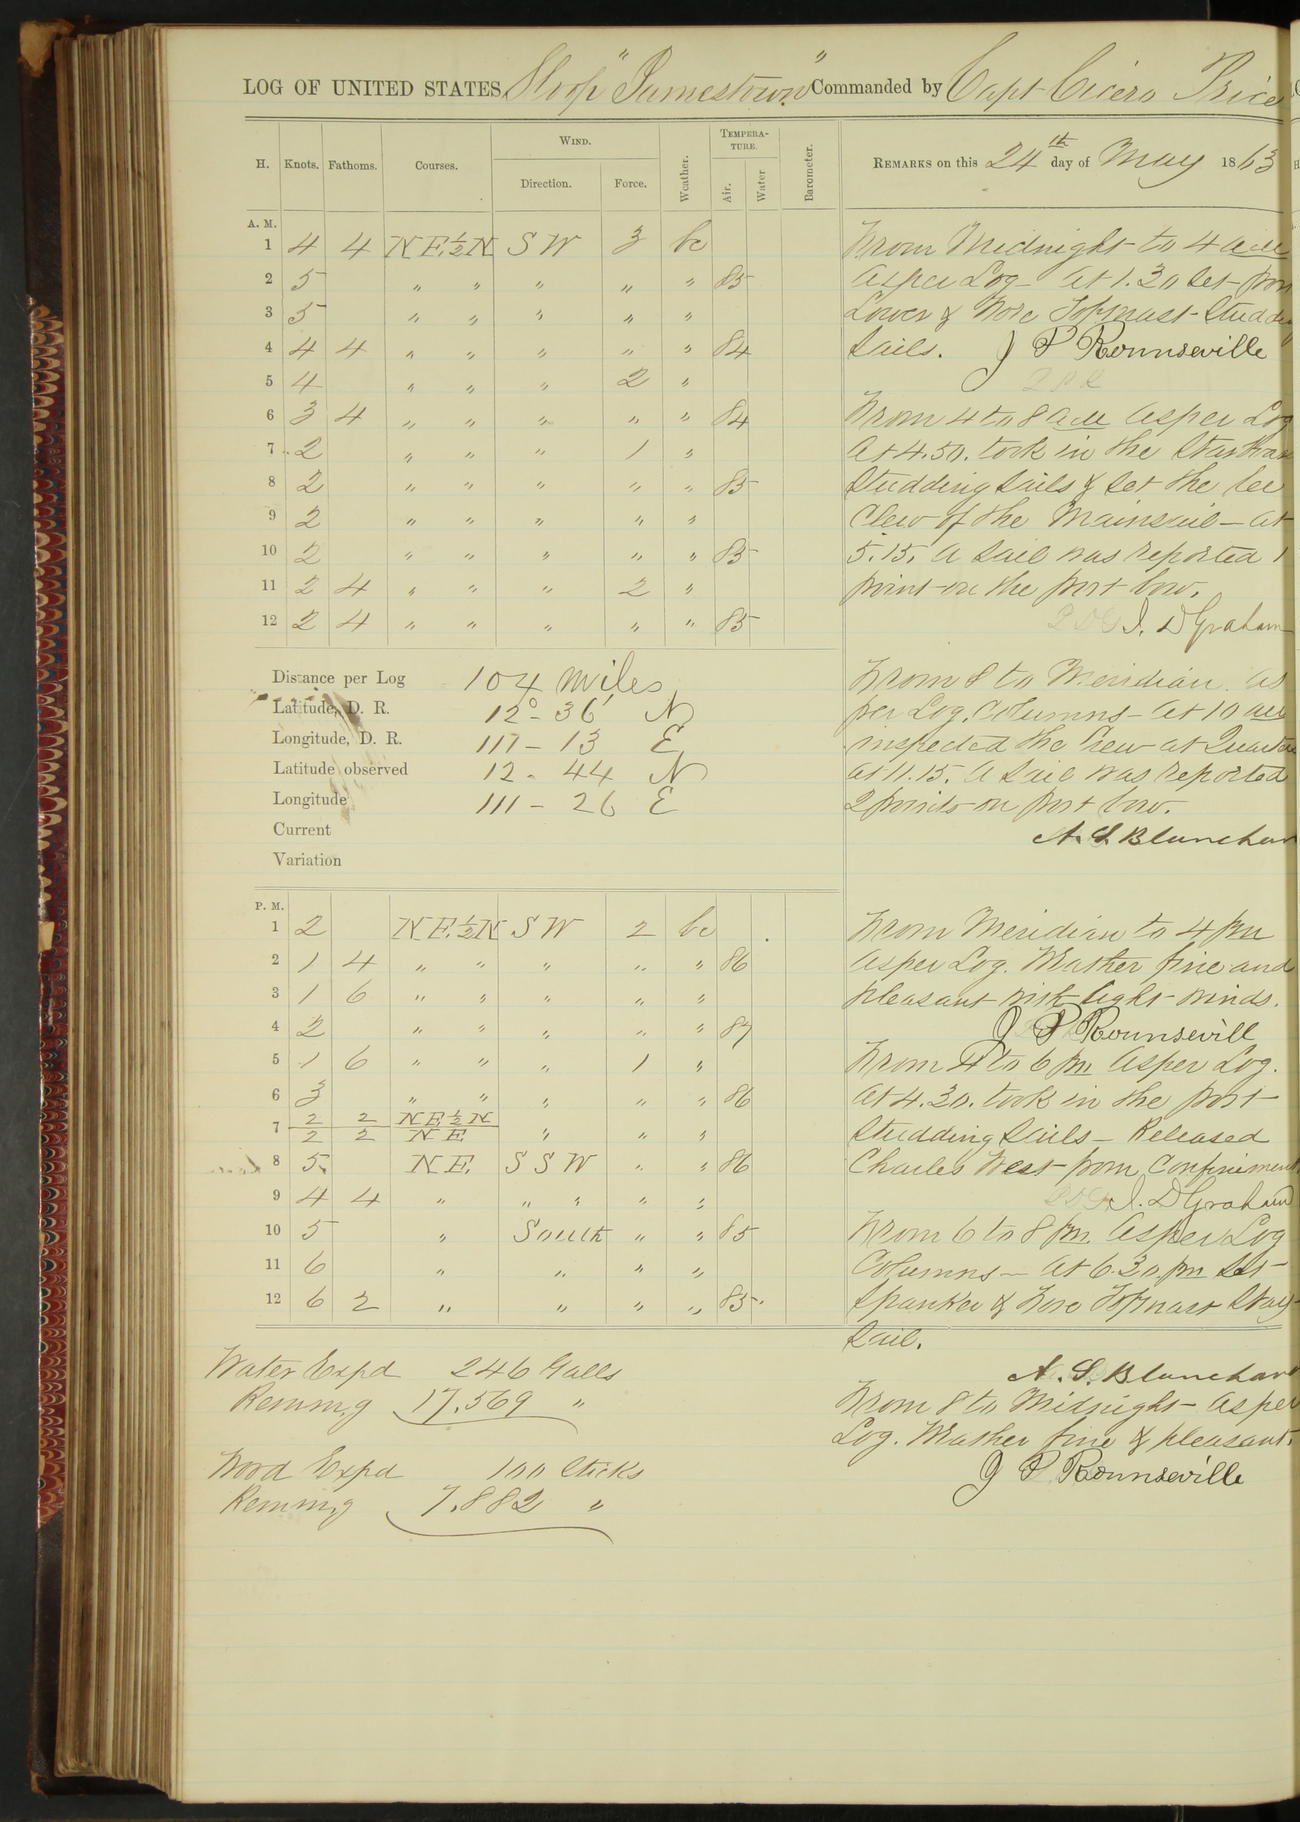 LOG OF UNITED STATES Sloop "Jamestown" Commanded by Capt Cicero Price
H. Knots. Fathoms. Courses. WIND. Direction. Force. Weather. TEMPERATURE. Air. Water Barometer. REMARKS on this 24th day of May 1863
A. M.
1 4 4 N E ½ N S W 3 bc
2 5 " " " " " 85
3 5 " " " " "
4 4 4 " " " " " 84
5 4 " " " 2 "
6 3 4 " " " " " 84
7 2 " " " 1 "
8 2 " " " " " 85
9 2 " " " " "
10 2 " " " " " 85
11 2 4 " " " 2 "
12 2 4 " " " " " 85
From Midnight to 4 am
as per Log – at 1.30 set fore
Lower & Fore Topmast Studding
Sails. J P Rounseville
From 4 to 8 am as per Log
At 4.50. took in the Starboard
Studding Sails & set the lee
Clew of the Mainsail – at
5.15. a sail was reported 1
point on the port bow.
I. D Graham
Distance per Log 104 miles
Latitude, D. R. 12° – 36' N
Longitude, D. R. 111 – 13 E
Latitude observed 12 – 44 N
Longitude 111 – 26 E
Current
Variation
From 8 to Meridian. as
per Log. Columns – at 10 am
inspected the Crew at Quarters
at 11.15. a sail was reported
2 points on port bow.
A. S. Blanchar
P. M.
1 2 N E ½ N S W 2 bc
2 1 4 " " " " " 86
3 1 6 " " " " "
4 2 " " " " " 87
5 1 6 " " " 1 "
6 3 " " " " " 86
7 2 2 N E ½ N
2 2 N E. " " "
8 5. N E. S S W " " 86
9 4 4 " " " " "
10 5 " South " " 85
11 6 " " " "
12 6 2 " " " " 85
From Meridian to 4 pm
as per Log. Weather fine and
pleasant with light winds.
J P Rounsevill
From 4 to 6 pm as per Log.
At 4.30. took in the port
Studding Sails – Released
Charles West from Confinement
I. D Graham
From 6 to 8 pm. as per Log
Columns – at 6.30. pm set
Spanker & Fore Topmast Stay-
sail.
A. S. Blanchar
From 8 to Midnight – as per
Log. Weather fine & pleasant.
J P Rounseville
Water Expd 246 Galls
Remng 17.569 "
Wood Expd 100 Sticks
Remng 7.882 "